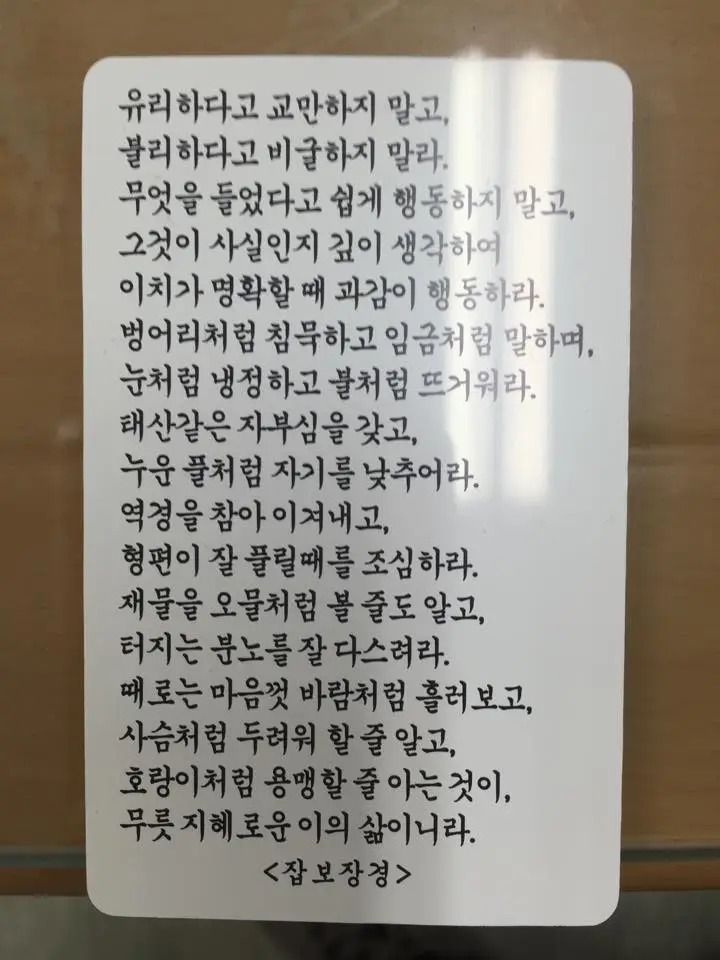 유리하다고 교만하지 말고,
불리하다고 비굴하지 말라.
무엇을 들었다고 쉽게 행동하지 말고,
그것이 사실인지 깊이 생각하여
이치가 명확할 때 과감이 행동하라.
벙어리처럼 침묵하고 임금처럼 말하며,
눈처럼 냉정하고 불처럼 뜨거워라.
태산같은 자부심을 갖고,
누운 풀처럼 자기를 낮추어라.
역경을 참아 이겨내고,
형편이 잘 풀릴때를 조심하라.
재물을 오물처럼 볼 줄도 알고,
터지는 분노를 잘 다스려라.
때로는 마음껏 바람처럼 흘러보고,
사슴처럼 두려워 할 줄 알고,
호랑이처럼 용맹할 줄 아는 것이,
무릇 지혜로운 이의 삶이니라.
<잡보장경>